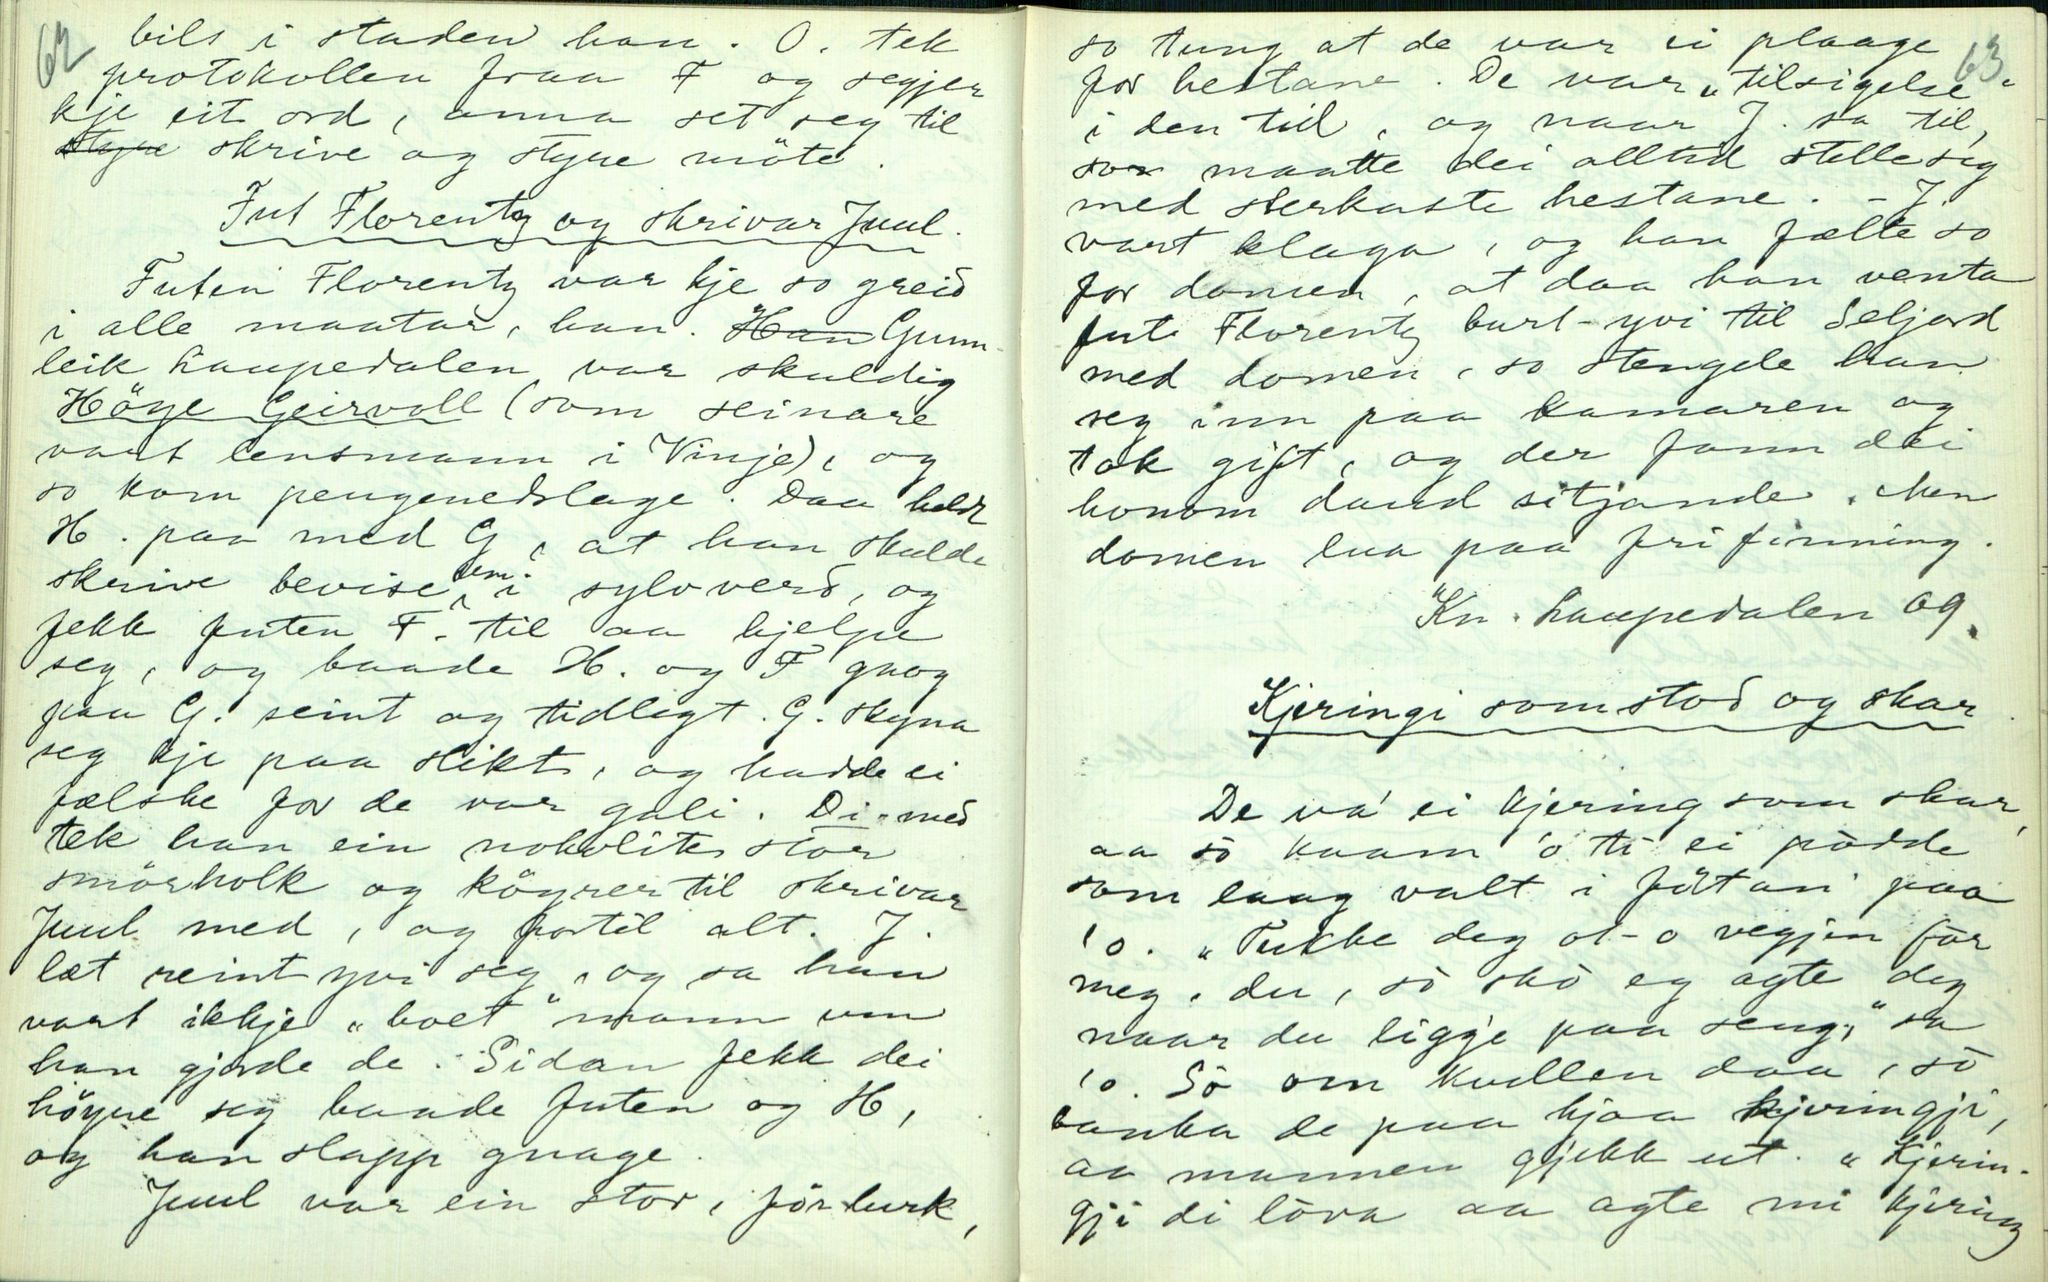 62
bils i staden han. O. tek
protokollen fraa F og segjer
kje eit ord, anna set seg til
styre skrive og styre möte.
Fut Florentz og skrivar Juul.
Futen Florentz var kje so greid
i alle maatar, han. Han Gunn-
leik Laupedalen var skuldig
Höge Geirvoll (som seinare
vart lensmann i Vinje), og
so kom pengenedslage. Daa heldt
H. paa med G, at han skulde
skrive bevise um i sylvverd, og
fekk futen F. til aa hjelpe
seg, og baade H. og F gnog
paa G. seint og tidlegt. G. skyna
seg kje paa slikt, og hadde ei
fælske for de var gali. Di-med
tek han ein nokolite stor
smörholk og köyrer til skrivar
Juul med, og fortel alt. J.
læt reint yvi seg, og sa han
vart ikkje "boet" mann um
han gjorde de. Sidan fekk dei
höyre seg baade futen og H,
og han slapp gnage.
Juul var ein stor, för burk,
63
so tung at de var ei plaage
for hestane. De var "tilsigelse"
i den tid, og naar J. sa til,
so maatte dei alltid stelle seg
med sterkaste hestane. - J.
vart klaga, og han fælte so
for domen, at daa han venta
fut Florentz burt-yvi til Seljord
med domen, so stengde han
seg inn paa kamaren og
tok gift, og der fann dei
honom daud sitjande. Men
domen lua paa frifinning.
Kn. Laupedalen og.
Kjeringi som stod og skar.
De va' ei kjering som skar,
aa so kaam 'o ti ei pòdde
som laag valt i fòtan' paa
'o. "Tukke deg ot-o vegjen før
meg, du, sò skò eg agte deg
naar du ligg'e paa seng," sa
'o. Sò om kvellen daa, sò
banka de paa hjaa kjeringji,
aa mannen gjekk ut. "Kjerin-
gji di lòva aa agte mi kjering